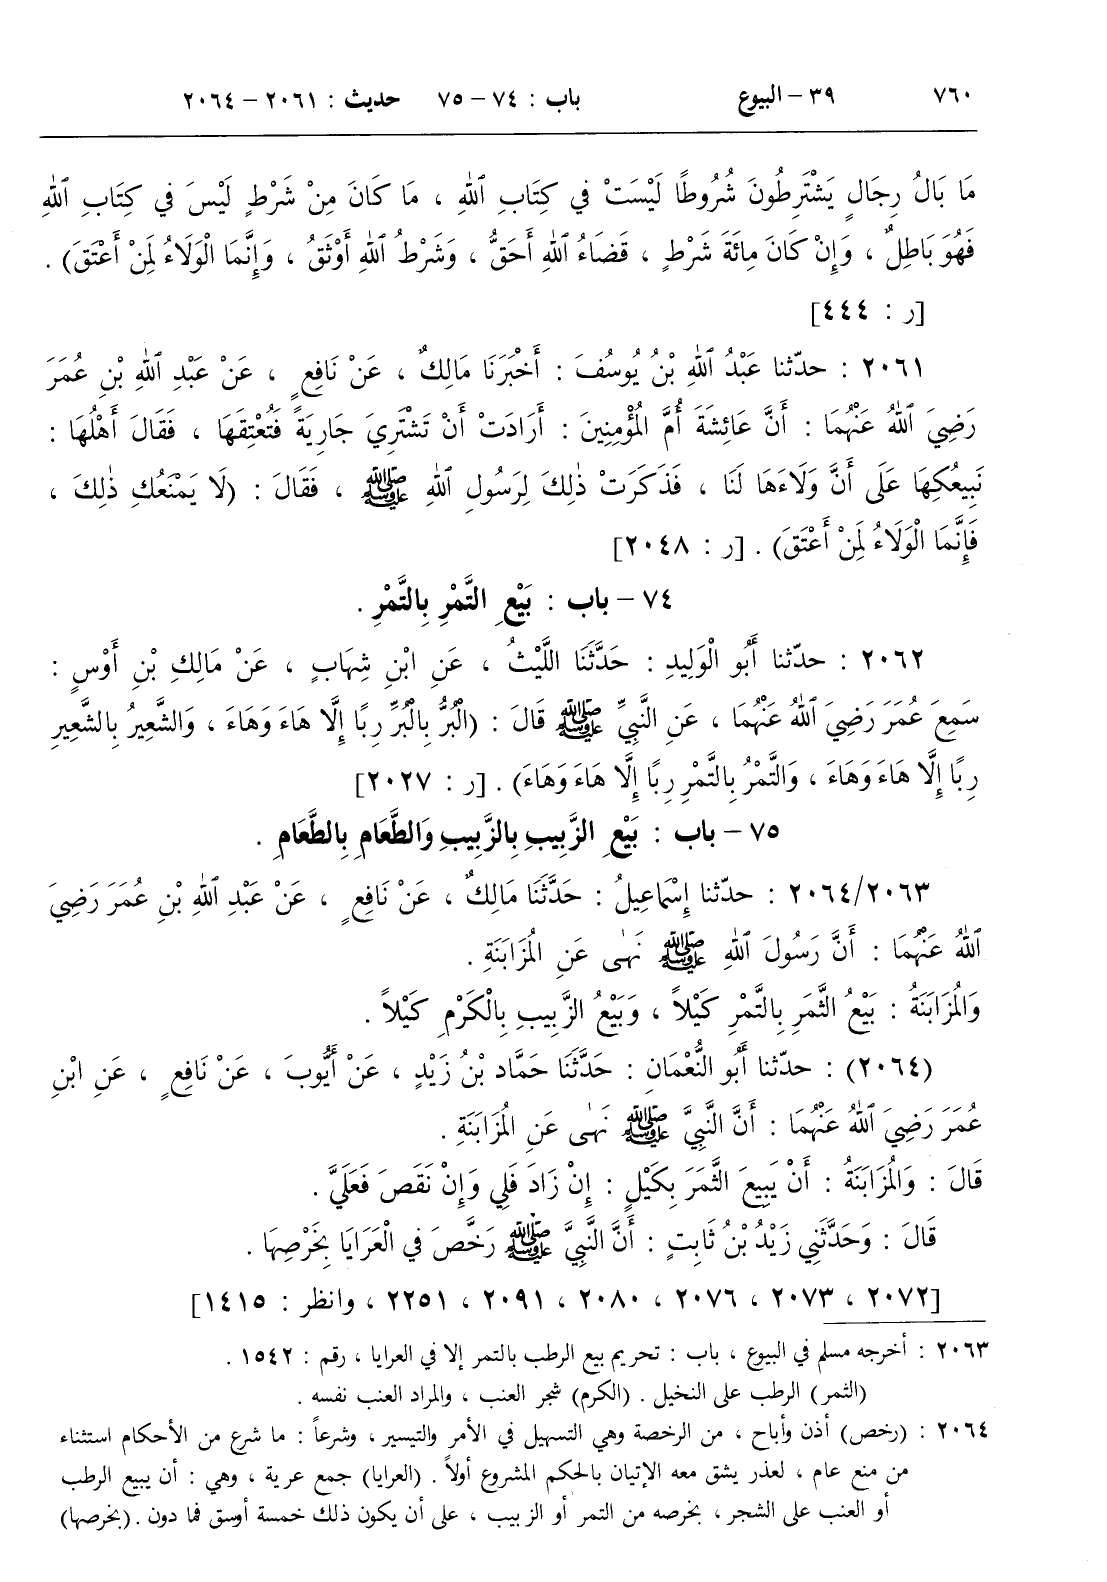 ٧٦٠ ٣٩ - البيوع باب : ٧٤ - ٧٥ حديث : ٢٠٦١ - ٢٠٦٤
مَا بَالُ رِجَالٍ يَشْتَرِطُونَ شُرُوطًا لَيْسَتْ فِي كِتَابِ ٱللهِ ، مَا كَانَ مِنْ شَرْطٍ لَيْسَ فِي كِتَابِ ٱللهِ
فَهُوَ بَاطِلٌ ، وَإِنْ كَانَ مِائَةَ شَرْطٍ ، قَضَاءُ ٱللهِ أَحَقُّ ، وَشَرْطُ ٱللهِ أَوْثَقُ ، وَإِنَّمَا الْوَلَاءُ لِمَنْ أَعْتَقَ) .
[ر : ٤٤٤]
٢٠٦١ : حدّثنا عَبْدُ ٱللهِ بْنُ يُوسُفَ : أَخْبَرَنَا مَالِكٌ ، عَنْ نَافِعٍ ، عَنْ عَبْدِ ٱللهِ بْنِ عُمَرَ
رَضِيَ ٱللهُ عَنْهُمَا : أَنَّ عَائِشَةَ أُمَّ الْمُؤْمِنِينَ : أَرَادَتْ أَنْ تَشْتَرِيَ جَارِيَةً فَتُعْتِقَهَا ، فَقَالَ أَهْلُهَا :
نَبِيعُكِهَا عَلَى أَنَّ وَلَاءَهَا لَنَا ، فَذَكَرَتْ ذٰلِكَ لِرَسُولِ ٱللهِ ﷺ ، فَقَالَ : (لَا يَمْنَعُكِ ذٰلِكَ ،
فَإِنَّمَا الْوَلَاءُ لِمَنْ أَعْتَقَ) . [ر : ٢٠٤٨]
٧٤ - باب : بَيْعِ التَّمْرِ بِالتَّمْرِ .
٢٠٦٢ : حدّثنا أَبُو الْوَلِيدِ : حَدَّثَنَا اللَّيْثُ ، عَنِ ابْنِ شِهَابٍ ، عَنْ مَالِكِ بْنِ أَوْسٍ :
سَمِعَ عُمَرَ رَضِيَ ٱللهُ عَنْهُمَا ، عَنِ النَّبِيِّ ﷺ قَالَ : (الْبُرُّ بِالْبُرِّ رِبًا إِلَّا هَاءَ وَهَاءَ ، وَالشَّعِيرُ بِالشَّعِيرِ
رِبًا إِلَّا هَاءَ وَهَاءَ ، وَالتَّمْرُ بِالتَّمْرِ رِبًا إِلَّا هَاءَ وَهَاءَ) . [ر : ٢٠٢٧]
٧٥ - باب : بَيْعِ الزَّبِيبِ بِالزَّبِيبِ وَالطَّعَامِ بِالطَّعَامِ .
٢٠٦٤/٢٠٦٣ : حدّثنا إِسْمَاعِيلُ : حَدَّثَنَا مَالِكٌ ، عَنْ نَافِعٍ ، عَنْ عَبْدِ ٱللهِ بْنِ عُمَرَ رَضِيَ
ٱللهُ عَنْهُمَا : أَنَّ رَسُولَ ٱللهِ ﷺ نَهٰى عَنِ الْمُزَابَنَةِ .
وَالْمُزَابَنَةُ : بَيْعُ الثَّمَرِ بِالتَّمْرِ كَيْلاً ، وَبَيْعُ الزَّبِيبِ بِالْكَرْمِ كَيْلاً .
(٢٠٦٤) : حدّثنا أَبُو النُّعْمَانِ : حَدَّثَنَا حَمَّادُ بْنُ زَيْدٍ ، عَنْ أَيُّوبَ ، عَنْ نَافِعٍ ، عَنِ ابْنِ
عُمَرَ رَضِيَ ٱللهُ عَنْهُمَا : أَنَّ النَّبِيَّ ﷺ نَهٰى عَنِ الْمُزَابَنَةِ .
قَالَ : وَالْمُزَابَنَةُ : أَنْ يَبِيعَ الثَّمَرَ بِكَيْلٍ : إِنْ زَادَ فَلِي وَإِنْ نَقَصَ فَعَلَيَّ .
قَالَ : وَحَدَّثَنِي زَيْدُ بْنُ ثَابِتٍ : أَنَّ النَّبِيَّ ﷺ رَخَّصَ فِي الْعَرَايَا بِخَرْصِهَا .
[٢٠٧٢ ، ٢٠٧٣ ، ٢٠٧٦ ، ٢٠٨٠ ، ٢٠٩١ ، ٢٢٥١ ، وانظر : ١٤١٥]
٢٠٦٣ : أخرجه مسلم في البيوع ، باب : تحريم بيع الرطب بالتمر إلا في العرايا ، رقم : ١٥٤٢ .
(الثمر) الرطب على النخيل . (الكرم) شجر العنب ، والمراد العنب نفسه .
٢٠٦٤ : (رخص) أذن وأباح ، من الرخصة وهي التسهيل في الأمر والتيسير ، وشرعاً : ما شرع من الأحكام استثناء
من منع عام ، لعذر يشق معه الإتيان بالحكم المشروع أولاً . (العرايا) جمع عرية ، وهي : أن يبيع الرطب
أو العنب على الشجر ، بخرصه من التمر أو الزبيب ، على أن يكون ذلك خمسة أوسق فما دون . (بخرصها)